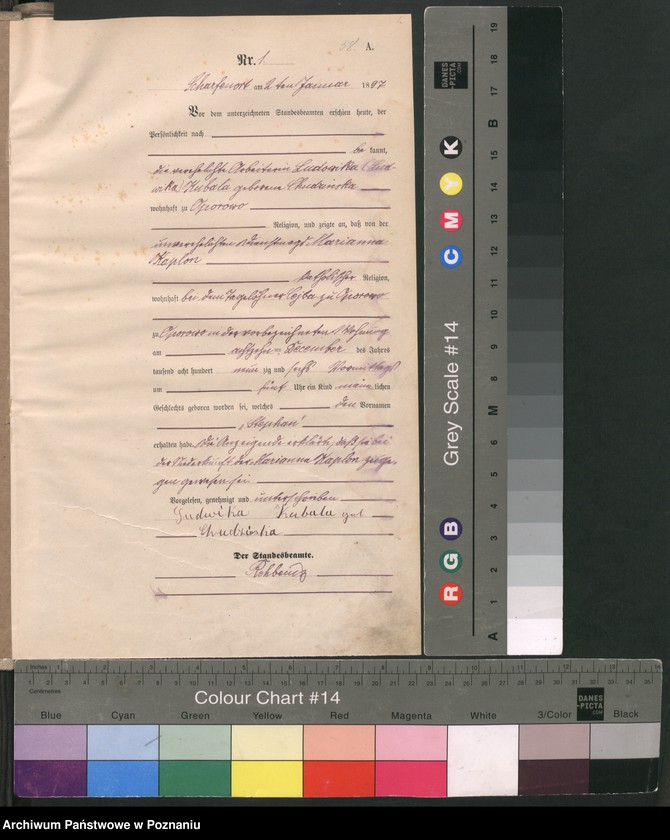 A.
Nr. 1.
Scharfenort am 2ten Januar 1897
Vor dem unterzeichneten Standesbeamten erschien heute, der
Persönlichkeit nach
be kannt,
die verehelichte Arbeiterin Ludowika (Lud-
wika) Kubala geborene
wohnhaft zu Oporowo
Religion, und zeigte an, daß von der
unverehelichten Dienstmagd Marianna
Kaplon
katholischer Religion,
wohnhaft bei dem Tagelöhner zu Oporowo
zu Oporowo in der vorbezeichneten Wohnung
am achtzehn ten December des Jahres
tausend acht hundert neun zig und sechs Vormittags
um fünf Uhr ein Kind männ lichen
Geschlechts geboren worden sei, welches den Vornamen
„Stephan“
erhalten habe. Die Anzeigende erklärt, daß sie bei
der Niederkunft der Marianna Kaplon zuge-
gen gewesen sei
Vorgelesen, genehmigt und unterschrieben
Ludwika Kubala geb
Der Standesbeamte.
DANES-PICTA.COM
Grey Scale #14
R G B C M Y K
A 1 2 3 4 5 6 M 8 9 10 11 12 13 14 15 B 17 18 19
Inches 1 2 3 4 5 6 7 8 9 10 11 12 13
Centimetres 1 2 3 4 5 6 7 8 9 10 11 12 13 14 15 16 17 18 19 20 21 22 23 24 25 26 27 28 29 30 31 32 33 34 35
Colour Chart #14
DANES-PICTA.COM
Blue Cyan Green Yellow Red Magenta White 3/Color Black
Archiwum Państwowe w Poznaniu